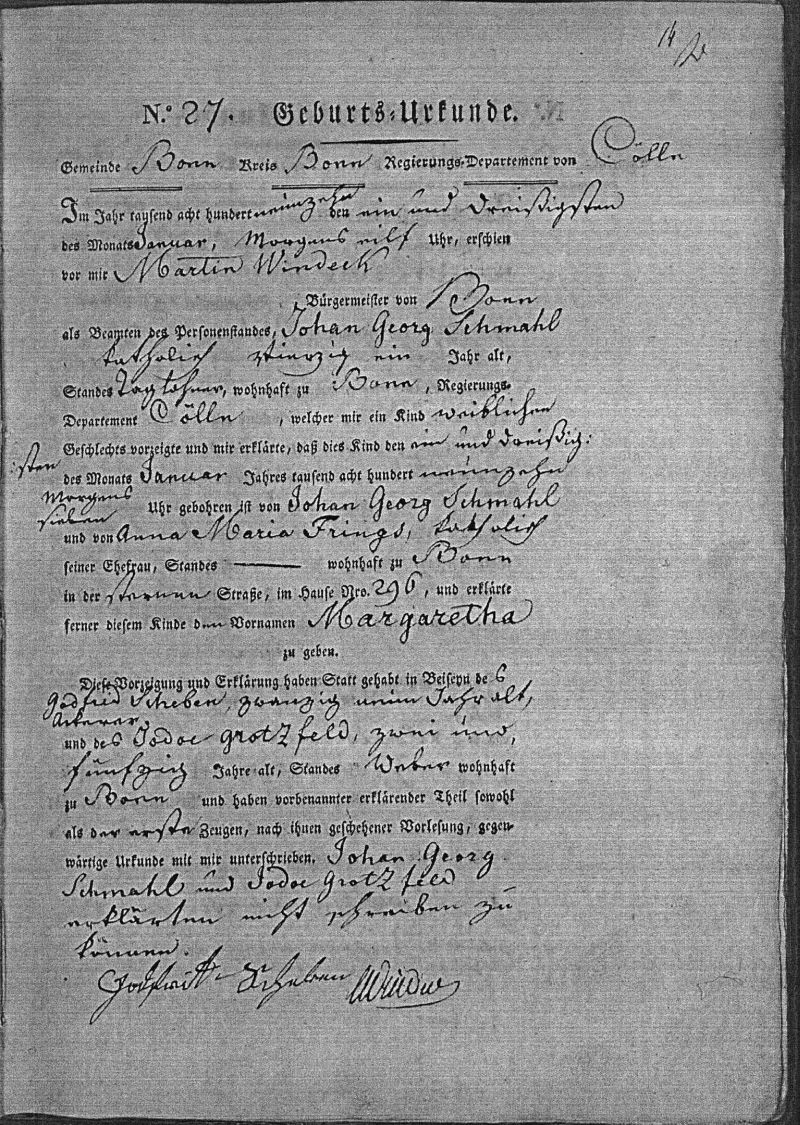 14
N.º 27. Geburts-Urkunde.
Gemeinde Bonn Kreis Bonn Regierungs-Departement von Cölln
Im Jahr tausend acht hundert neunzehn den ein und dreißigsten
des Monats Januar, Morgens eilf Uhr, erschien
vor mir Martin Windeck
Bürgermeister von Bonn
als Beamten des Personenstandes, Johan Georg Schmahl
katholisch vierzig ein Jahr alt,
Standes Taglohner, wohnhaft zu Bonn, Regierungs-
Departement Cölln, welcher mir ein Kind weiblichen
Geschlechts vorzeigte und mir erklärte, daß dies Kind den ein und dreißig:
:sten
des Monats Januar Jahres tausend acht hundert neunzehn
Morgens
sieben Uhr gebohren ist von Johan Georg Schmahl
und von Anna Maria Frings, katholisch
seiner Ehefrau, Standes ——— wohnhaft zu Bonn
in der sternen Straße, im Hause Nro. 296, und erklärte
ferner diesem Kinde den Vornamen Margaretha
zu geben.
Diese Vorzeigung und Erklärung haben Statt gehabt in Beiseyn des
Godfried Scheben, zwanzig neun Jahr alt,
Ackerer
und des Jodoc Grotzfeld, zwei und,
fünfzig Jahre alt, Standes Weber wohnhaft
zu Bonn und haben vorbenannter erklärender Theil sowohl
als der erste Zeugen, nach ihnen geschehener Vorlesung, gegen-
wärtige Urkunde mit mir unterschrieben. Johan Georg
Schmahl und Jodoc Grotzfeld
erklärten nicht schreiben zu
können.
Scheben Windeck